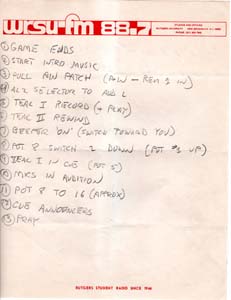 wrsu-fm 88.7
① GAME ENDS
② START INTRO MUSIC
③ PULL A/W PATCH (A/W – REM 1 IN)
④ AL2 SELECTOR TO ADD 2
⑤ TEAC I RECORD (+ PLAY)
⑥ TEAC II REWIND
⑦ BEEPER 'ON' (SWITCH TOWARD YOU)
⑧ POT 8 SWITCH 2 DOWN (POT #1 UP)
⑨ TEAC I IN CUE (POT 5)
⑩ MICS IN AUDITION
⑪ POT 8 TO 16 (APPROX)
⑫ CUE ANNOUNCERS
⑬ PRAY
RUTGERS STUDENT RADIO SINCE 1948